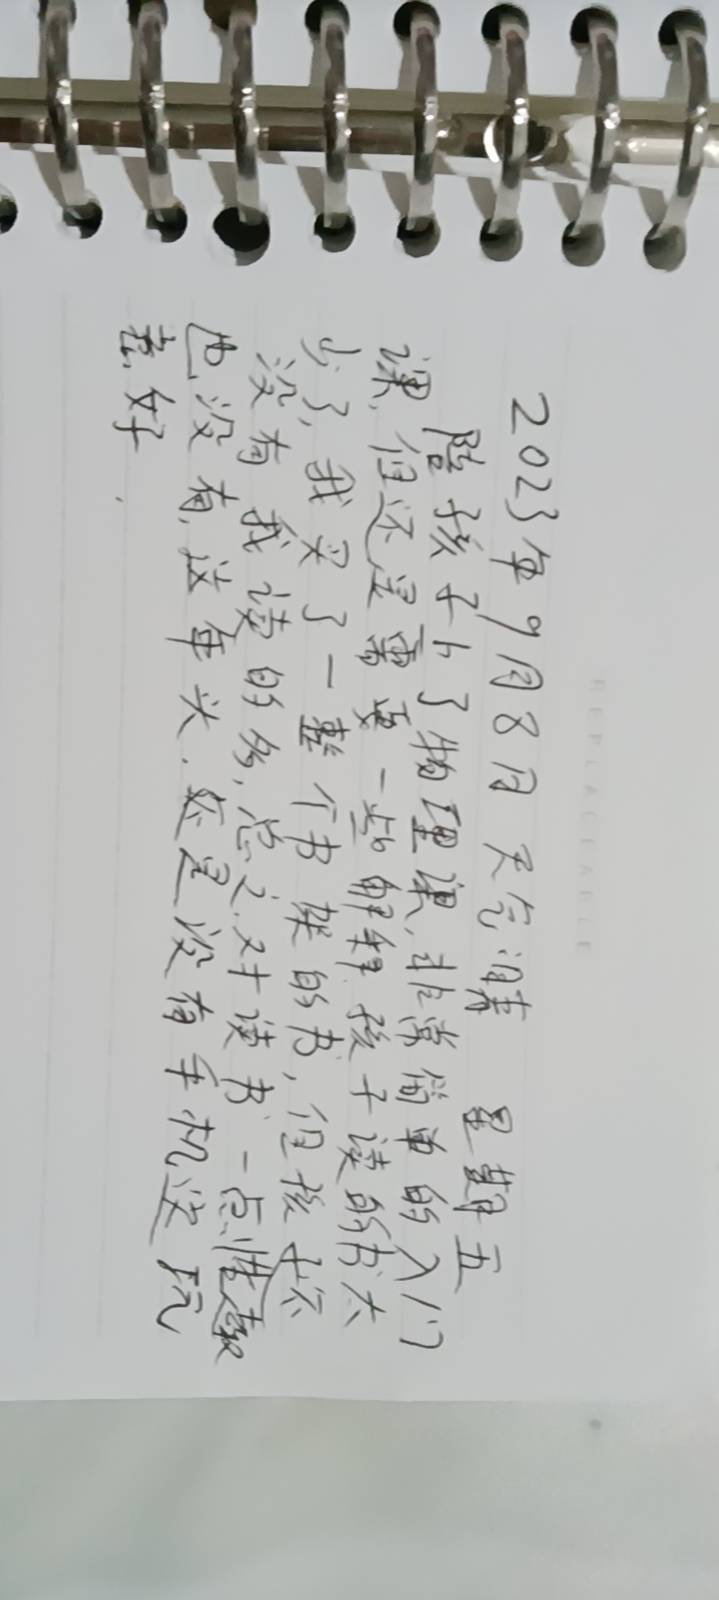 REPLACEABLE
2023年9月8日 天气晴 星期五
陪孩子上了物理课,非常简单的入门
课,但还是需要一些解释,孩子读的书太
少了,我买了一整个书架的书,但孩子还
没有我读的多,总之,对读书一点兴趣
也没有,这年头,还是没有手机这玩
意好.